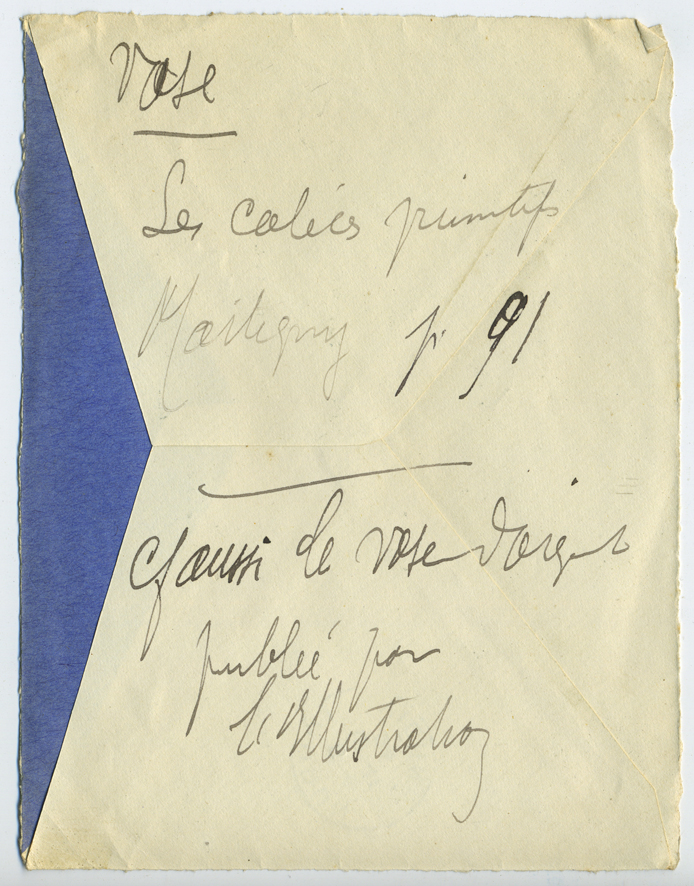 Vase
Les calices primitifs
Martigny p. 91
cf aussi le vase d'argent
publié par
l'Illustration